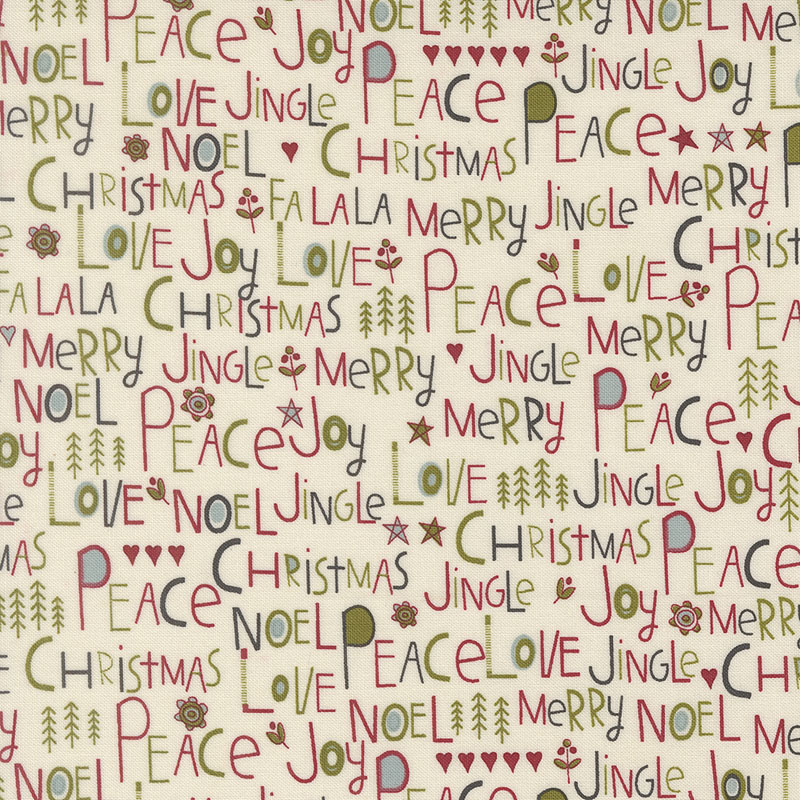 PEACE JOY MERRY NOEL ME
NOEL LOVE JINGLE PEACE JINGLE JOY L
MERRY NOEL CHRISTMAS PEACE
CHRISTMAS FA LALA MERRY JINGLE MERRY P
LE LOVE JOY LOVE PEACE LOVE CHRIST
FA LALA CHRISTMAS PEA
MERRY JINGLE MERRY JINGLE MERRY
NOEL PEACE JOY MERRY PEACE J C
OY LOVE JINGLE JOY
LE LOVE NOEL JINGLE
MAS PEACE CHRISTMAS CHRISTMAS PEACE
NOEL PEACE LOVE JINGLE JOY MERRY
E CHRISTMAS LOVE JINGLE CHRI
Y PEACE JOY NOEL MERRY NOEL ME
NOEL LOVE JINGLE PEACE JINGLE JOY L